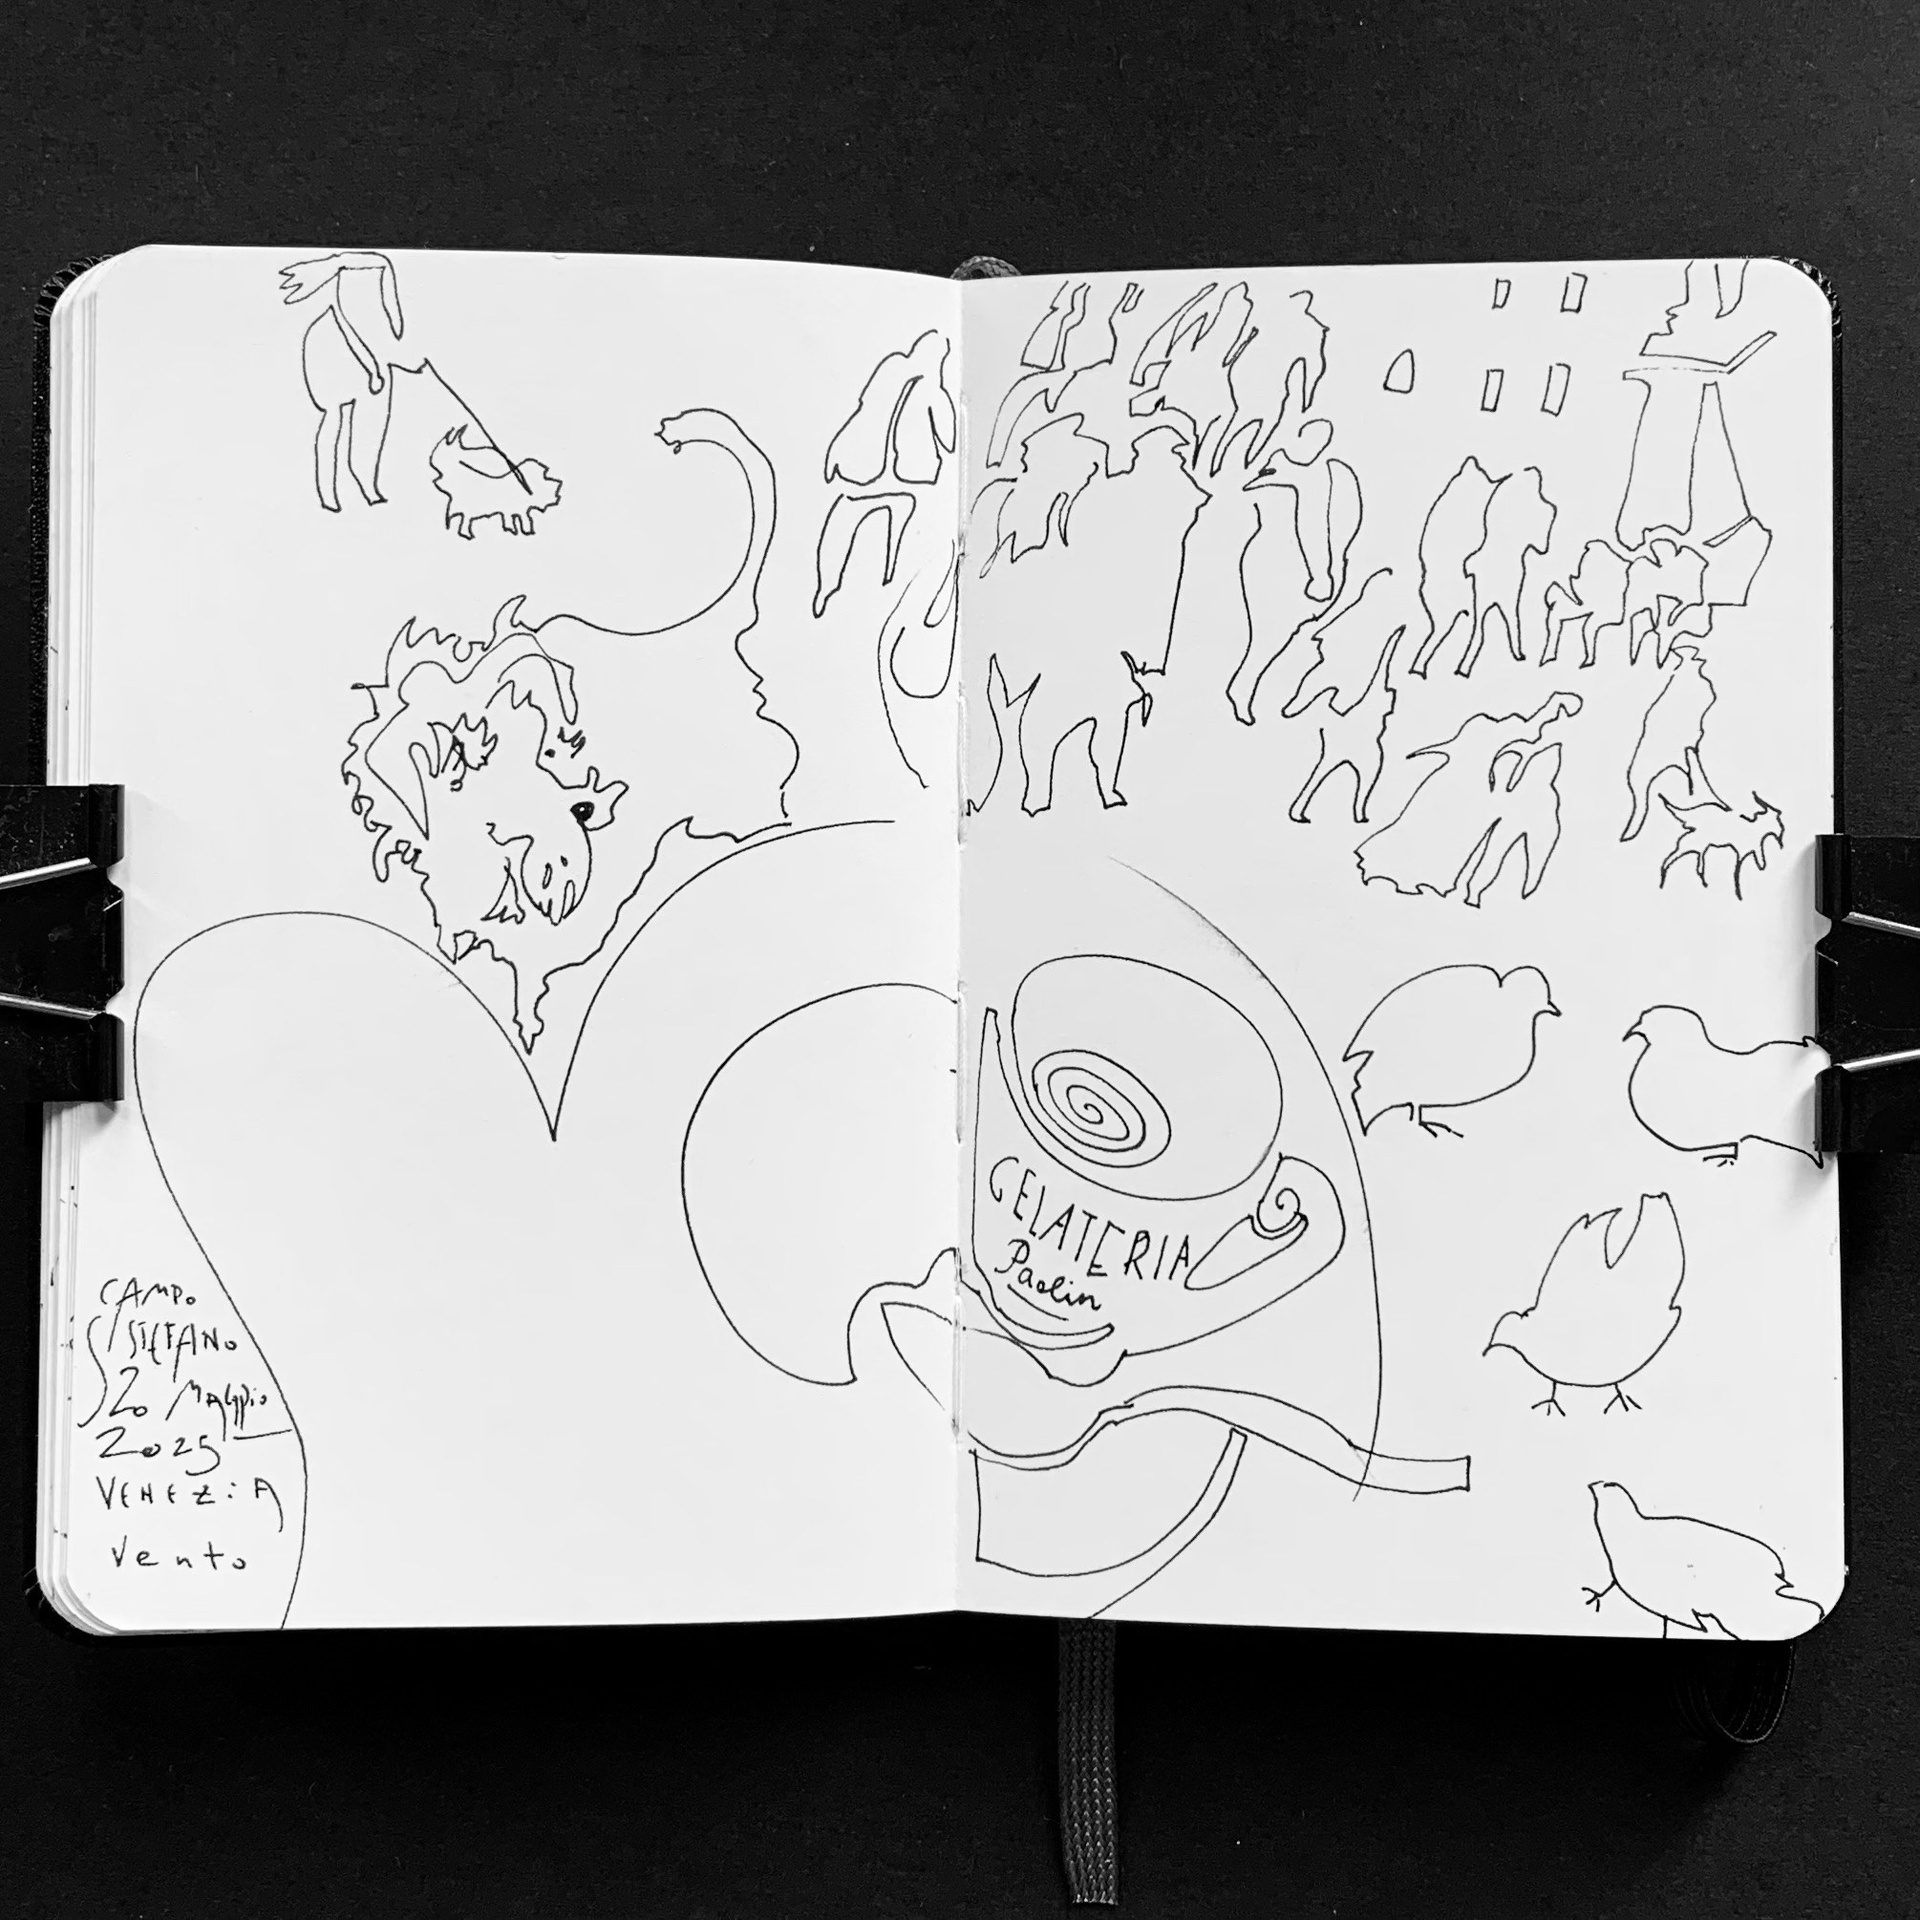 CAMPO
S/STEFANO
20 Maggio
2025
VENEZiA
Vento
GELATERIA
Paolin